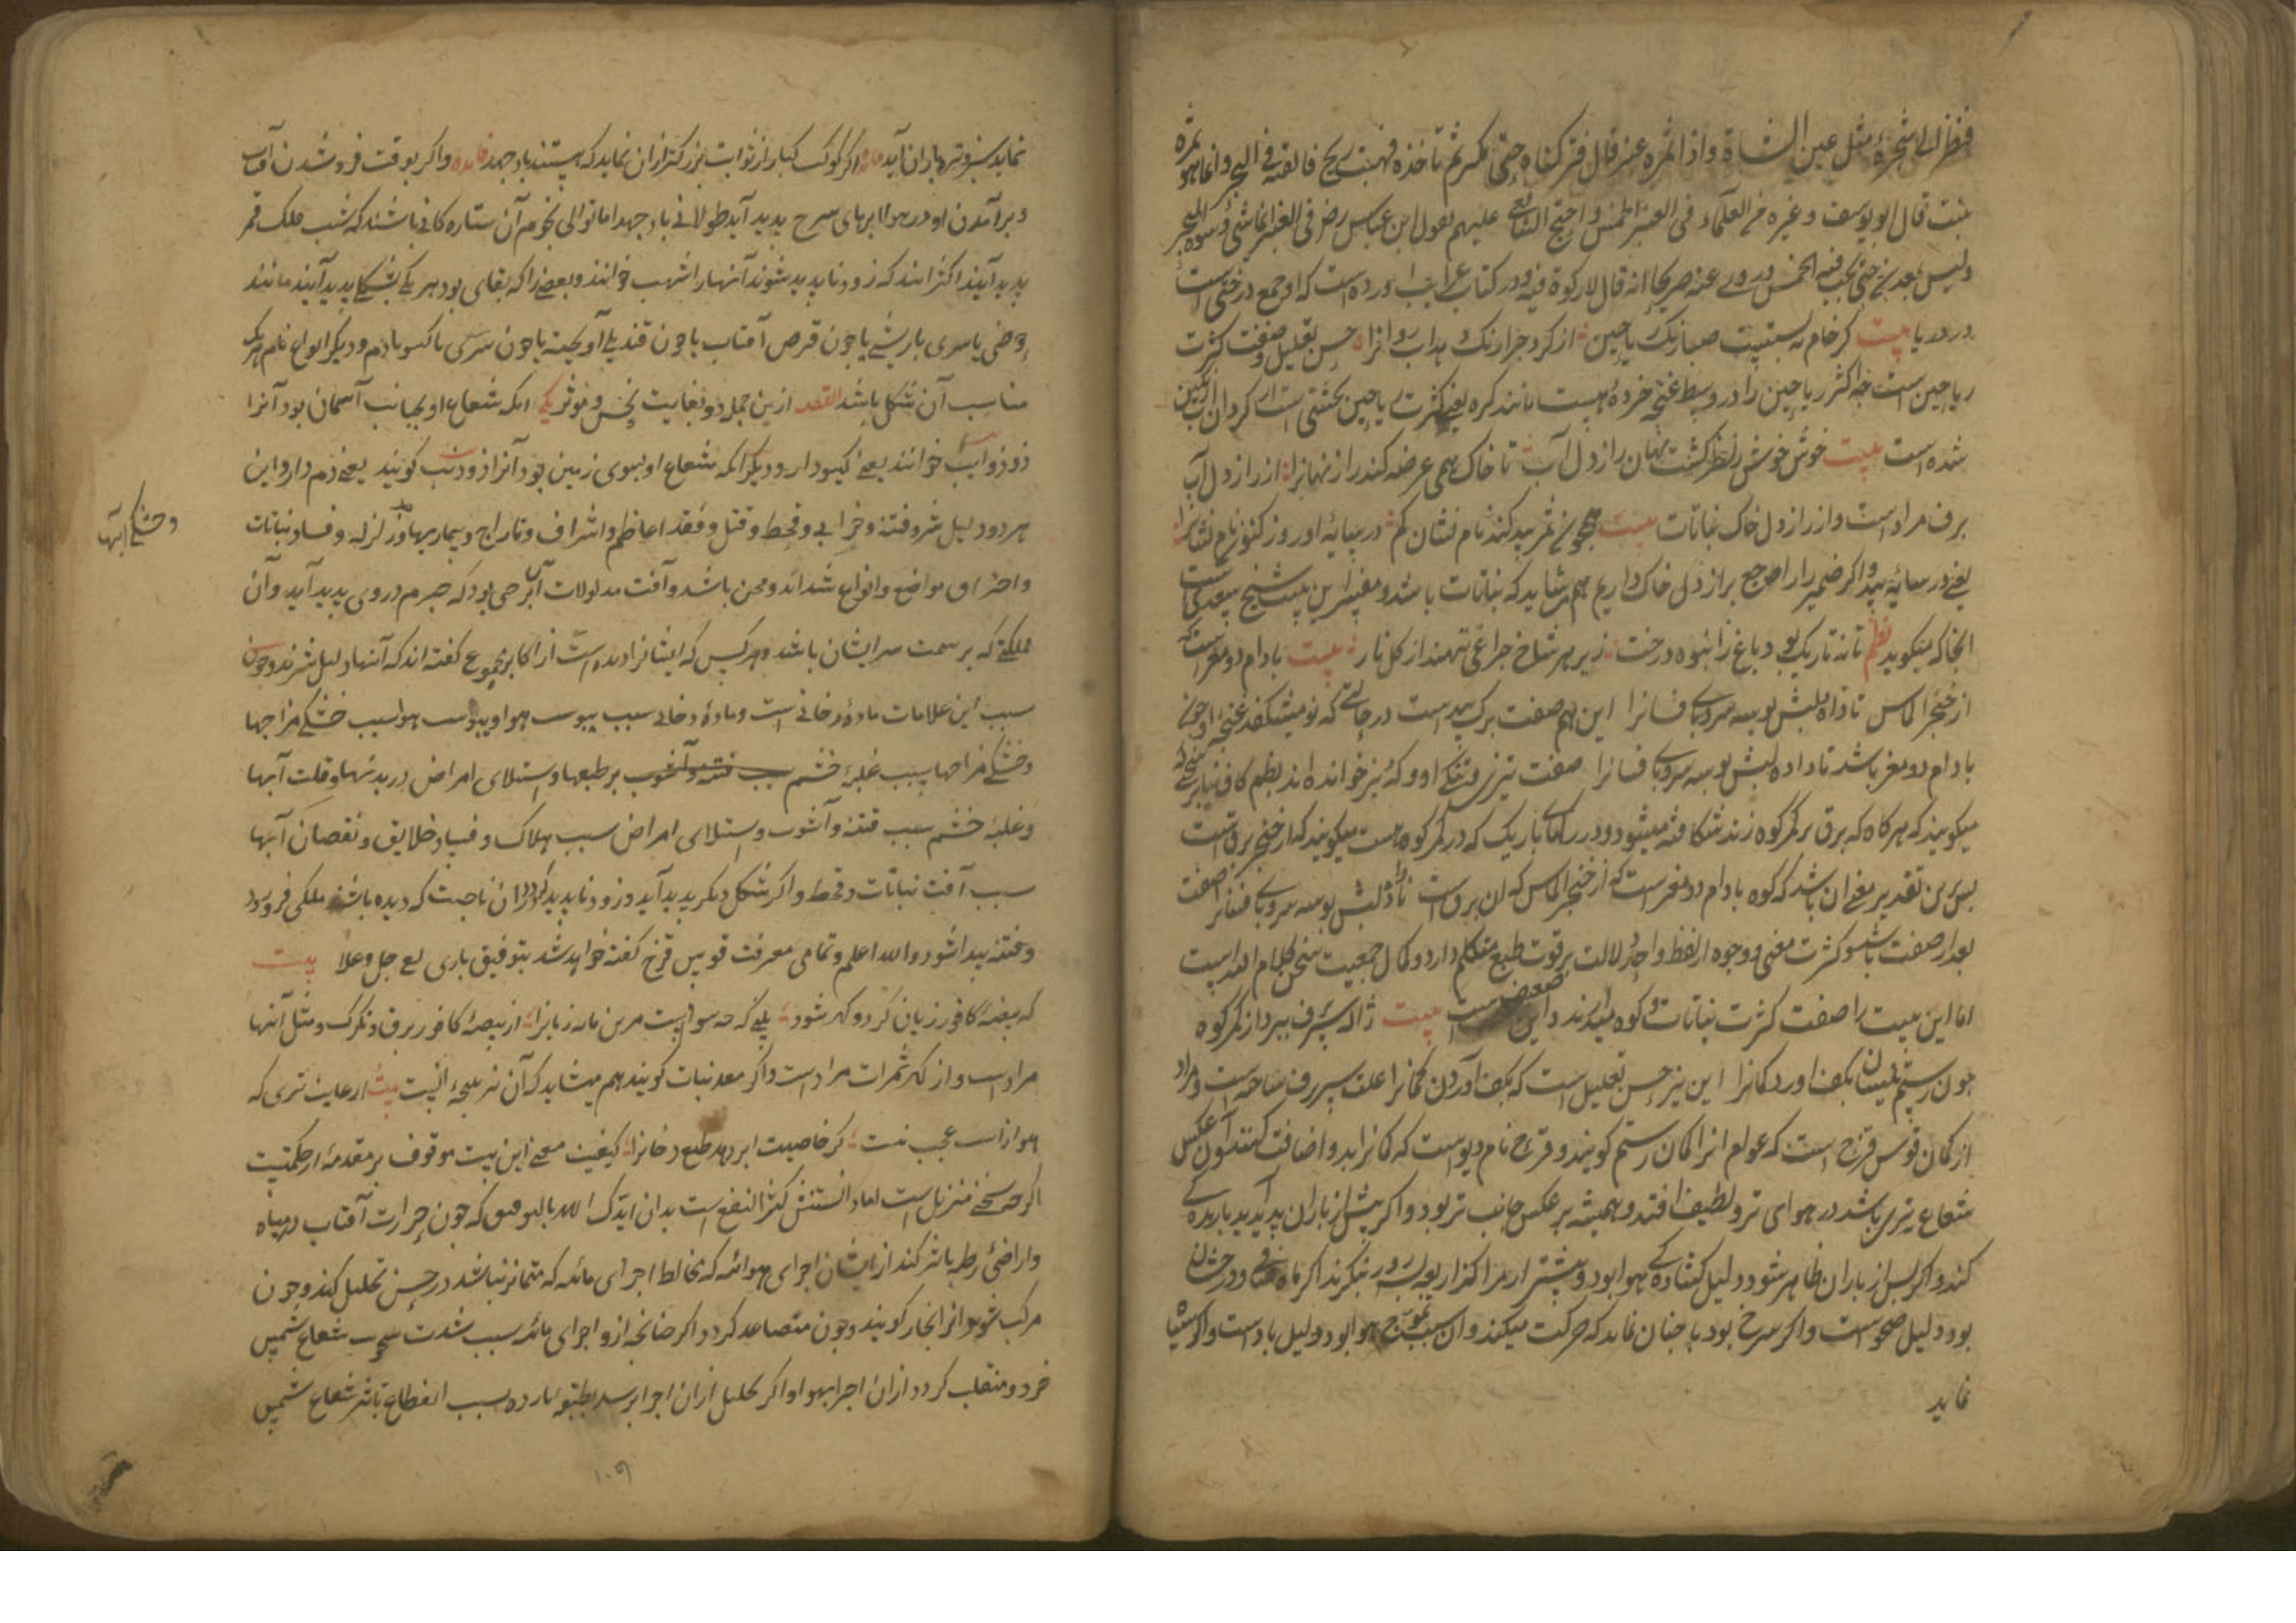 فنظرنا الی شجرة مثل عین الشاة واذا ثمره عنبر قال فترکناه حتی یکبر ثم ناخذه فهبت ریح فالقته فی البحر وانما هو ثمرة
نبت قال ابو یوسف و غیره من العلماء فی العنبر الخمس و احتج الشافعی علیهم بقول ابن عباس رض فی العنبر انما شئ دسره البحر
ولیس بمعدن حتی یجب فیه الخمس و روی عنه صریحا انه قال لا زکوة فیه و در کتاب عجایب آورده است که او صمغ درختی است
در دریا بیت کر خام نه بستست صبا رنک ریاحین از کرد چرا رنک بداد آب روانرا حسن تعلیل و صفت کثرت
ریاحین است چه اکثر ریاحین را در وسط غنچه خرده هست مانند کره یعنی کثرت ریاحین بحیثیتی است که کردان آب رنکین
شده است بیت خوش خوش ز نظر کشت نهان راز دل آب تا خاک همی عرضه کند راز نهانرا از راز دل آب
برف مراد است و از راز دل خاک نباتات بیت همچون ثمر بید کند نام و نشان کم در سایه او روز کنون نام و نشانرا
یعنی در سایه بید و اکر ضمیر را راجع براز دل خاک داریم هم شاید که نباتات باشد و مفسر این بیت شیخ سعدی است
انجا که میکوید نظم تا نه تاریک بود باغ ز انبوه درخت زیر هر شاخ چراغی بنهند از کل نار بیت بادام دو مغز است که
از خنجر الماس ناداده لبش بوسه سراپای فسانرا این هم صفت برک بید است در حالتی که نو میشکفد غنچه او چون
بادام دو مغز باشد ناداده لبش بوسه سراپای فسانرا صفت تیزی و تنکی او و که نیز خوانده اند بضم کاف بنابر معنی که
میکویند که هر کاه که برق بر کمر کوه زند شکافته میشود و در راههای باریک که در کمر کوه هست میکویند که از خنجر برق است
پس برین تقدیر معنی آن باشد که کوه بادام دو مغز است که از خنجر الماس که آن برق است ناداده لبش بوسه سراپای فسانرا صفت
بعد از صفت باشد و کثرت معنی و وجوه از لفظ واحد دلالت بر قوت طبع متکلم دارد و کمال جمعیت سخن کلام الله است
اما این بیت را صفت کثرت نباتات کوه میدارند و این ضعیف است بیت ژاله سپر برف ببرد از کمر کوه
چون رستم نیسان بکف آورد کمانرا این نیز حسن تعلیل است که بکف آوردن کمانرا علت سپر برف ساخته است و مراد
از کمان قوس قزح است که عوام انرا کمان رستم کویند و قزح نام دیوست که کمانرا بدو اضافت کنند و آن عکس
شعاع نیری باشد در هوای تر و لطیف افتد و همیشه بر عکس جانب نیر بود و اکر پیش از باران پدید آید باریدن
کند و اکر پس از باران ظاهر شود دلیل کشادکی هوا بود و بیشتر از مرا کذار بود و نیکرند اکر ماه صافی و درخشان
بود دلیل صحو است و اکر سرخ بود یا چنان نماید که حرکت میکند و آن سبب تموج هوا بود دلیل باد است و اکر سیاه
نماید
نماید سبز و تیره باران آید فایده اکر کواکب کبار از ثوابت بزرکتر از ان نماید که هستند باد جهد فایده واکر بوقت فروشدن آفتاب
و برآمدن او در هوا ابرهای سرخ پدید آید طولانی باد جهد اما توالی نجوم آن ستاره کانی باشند که شب فلک قمر
پدید آیند اکثر انند که زود ناپدید شوند آنها را شهب خوانند و بعضی را که بقای بود هر یکی بشکلی پدید آیند مانند
حوضی یا سری با ریشی یا چون قرص آفتاب یا چون قندیلی آویخته یا چون سری با کیسو با دم و دیکر انواع نام هر یک
مناسب آن شکل باشد القصه ازین جمله دو بغایت نحس و موثر یکی آنکه شعاع او بجانب آسمان بود آنرا
ذو ذوایب خوانند یعنی کیسودار و دیکر آنکه شعاع او بسوی زمین بود آنرا ذو ذنب کویند یعنی دم دار و این
هر دو دلیل شر و فتنه و خرابی و قحط و قتل و فقد اعاظم و اشراف و تاراج و بیماریها و زلزله و فساد نباتات
و خشکی آبها
و احتراق مواضع و انواع شداید و محن باشد و آفت مدلولات آن برجی بود که جرم در وی پدید آید و آن
مملکتی که بر سمت سر ایشان باشد و هر کس که ایشانرا دیده است از اکابر مجموع کفته اند که آنها دلیل شرند و چون
سبب این علامات ماده دخانی است و ماده دخانی سبب یبوست هوا و یبوست هوا سبب خشکی مزاجها
و خشکی مزاجها سبب غلبه خشم سبب فتنه و آشوب بر طبعها و استیلای امراض در بدنها و قلت آبها
و غلبه خشم سبب فتنه و آشوب و استیلای امراض سبب هلاک و فساد خلایق و نقصان آبها
سبب آفت نباتات و قحط و اکر شکل دیکر پدید آید و زود ناپدید کردد از ان ناحیت که دیده باشند ملکی فرو رود
و فتنه پیدا شود والله اعلم و تمامی معرفت قوس قزح کفته خواهد شد بتوفیق باری تع جل و علا بیت
که بیضه کافور زیان کرد و کهر شود بینی که چه سود است مرین مایه زیانرا از بیضه کافور برف و تکرک و مثل آنها
مراد است و از کهر ثمرات مراد است و اکر معدنیات کویند هم میشاید که آن نیز نتیجه انیست بیت از غایت تری که
هوا راست عجب نیست کر خاصیت ابر دهد طبع دخانرا کیفیت معنی این بیت موقوف بر مقدمه از حکمتست
اکرچه سخن منزیل است اما دانستنش کثیر النفع است بدان ایدک الله بالتوفیق که چون حرارت آفتاب در میاه
و اراضی رطبه تاثیر کند از ایشان اجزای هوائیه که مخالط اجزای مائیه که متمایز نباشد در حس تحلیل کند و چون
مرکب شود انرا بخار کویند و چون متصاعد کردد اکر چنانچه ازو اجزای مائیه سبب شدت سحب شعاع شمس
خرد و منقلب کردد از ان اجزا بهوا و اکر تحلیل از ان اجزا برسد بطبقه بارده بسبب انقطاع تاثیر شعاع شمس
۱۰۹